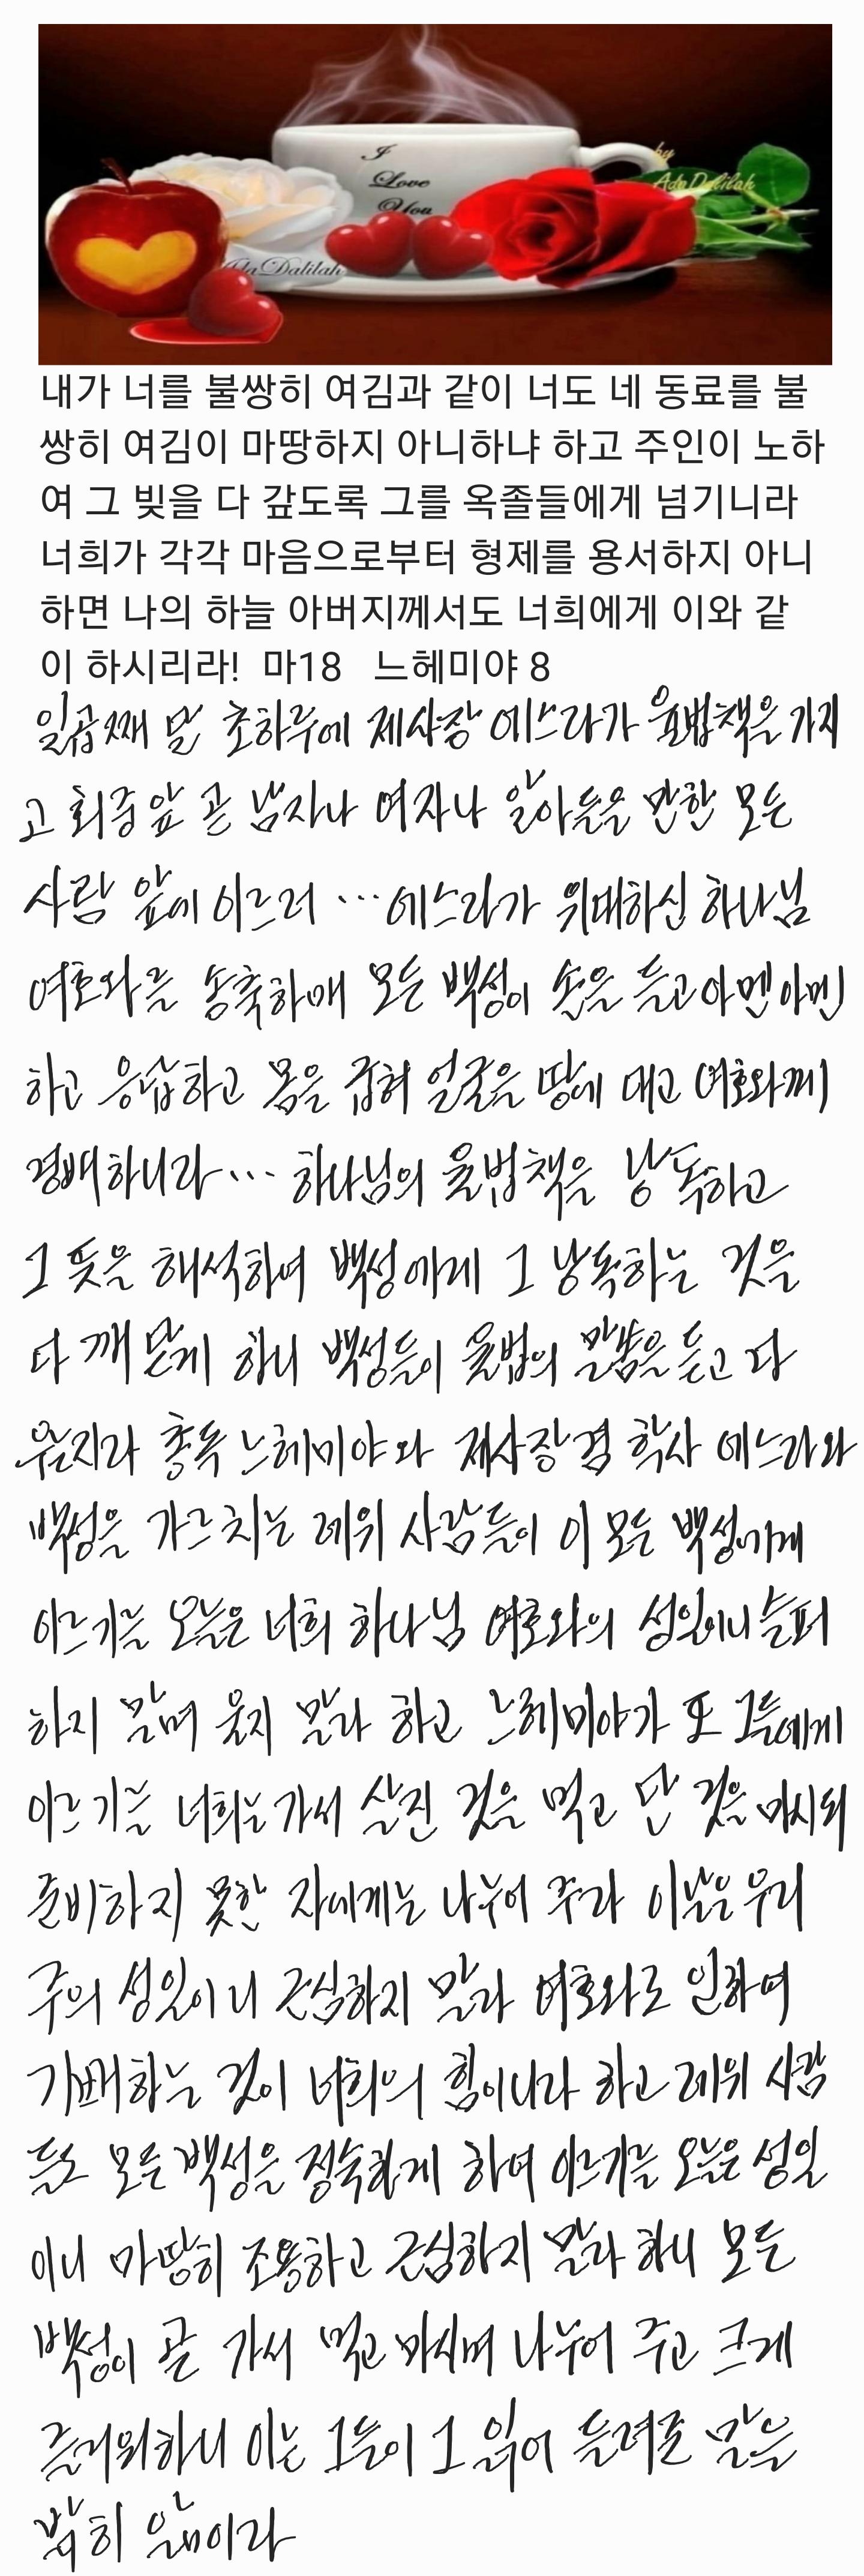 I
Love
You
by
AdaDalilah
AdaDalilah
내가 너를 불쌍히 여김과 같이 너도 네 동료를 불
쌍히 여김이 마땅하지 아니하냐 하고 주인이 노하
여 그 빚을 다 갚도록 그를 옥졸들에게 넘기니라
너희가 각각 마음으로부터 형제를 용서하지 아니
하면 나의 하늘 아버지께서도 너희에게 이와 같
이 하시리라! 마18 느헤미야 8
일곱째 달 초하루에 제사장 에스라가 율법책을 가지
고 회중 앞 곧 남자나 여자나 알아들을 만한 모든
사람 앞에 이르러 … 에스라가 위대하신 하나님
여호와를 송축하매 모든 백성이 손을 들고 아멘 아멘
하고 응답하고 몸을 굽혀 얼굴을 땅에 대고 여호와께
경배하니라 … 하나님의 율법책을 낭독하고
그 뜻을 해석하여 백성에게 그 낭독하는 것을
다 깨닫게 하니 백성들이 율법의 말씀을 듣고 다
우는지라 총독 느헤미야와 제사장 겸 학사 에스라와
백성을 가르치는 레위 사람들이 이 모든 백성에게
이르기를 오늘은 너희 하나님 여호와의 성일이니 슬퍼
하지 말며 울지 말라 하고 느헤미야가 또 그들에게
이르기를 너희는 가서 살진 것을 먹고 단 것을 마시되
준비하지 못한 자에게는 나누어 주라 이 날은 우리
주의 성일이니 근심하지 말라 여호와로 인하여
기뻐하는 것이 너희의 힘이니라 하고 레위 사람
들도 모든 백성을 정숙하게 하여 이르기를 오늘은 성일
이니 마땅히 조용하고 근심하지 말라 하니 모든
백성이 곧 가서 먹고 마시며 나누어 주고 크게
즐거워하니 이는 그들이 그 읽어 들려준 말을
밝히 앎이라